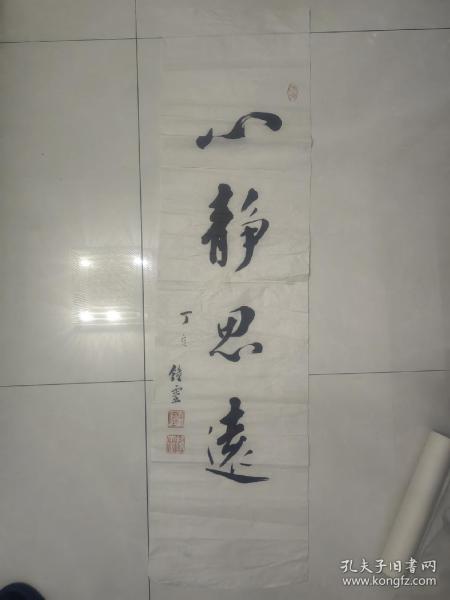 心静思遠
丁亥
鐘靈
孔夫子旧书网
www.kongfz.com